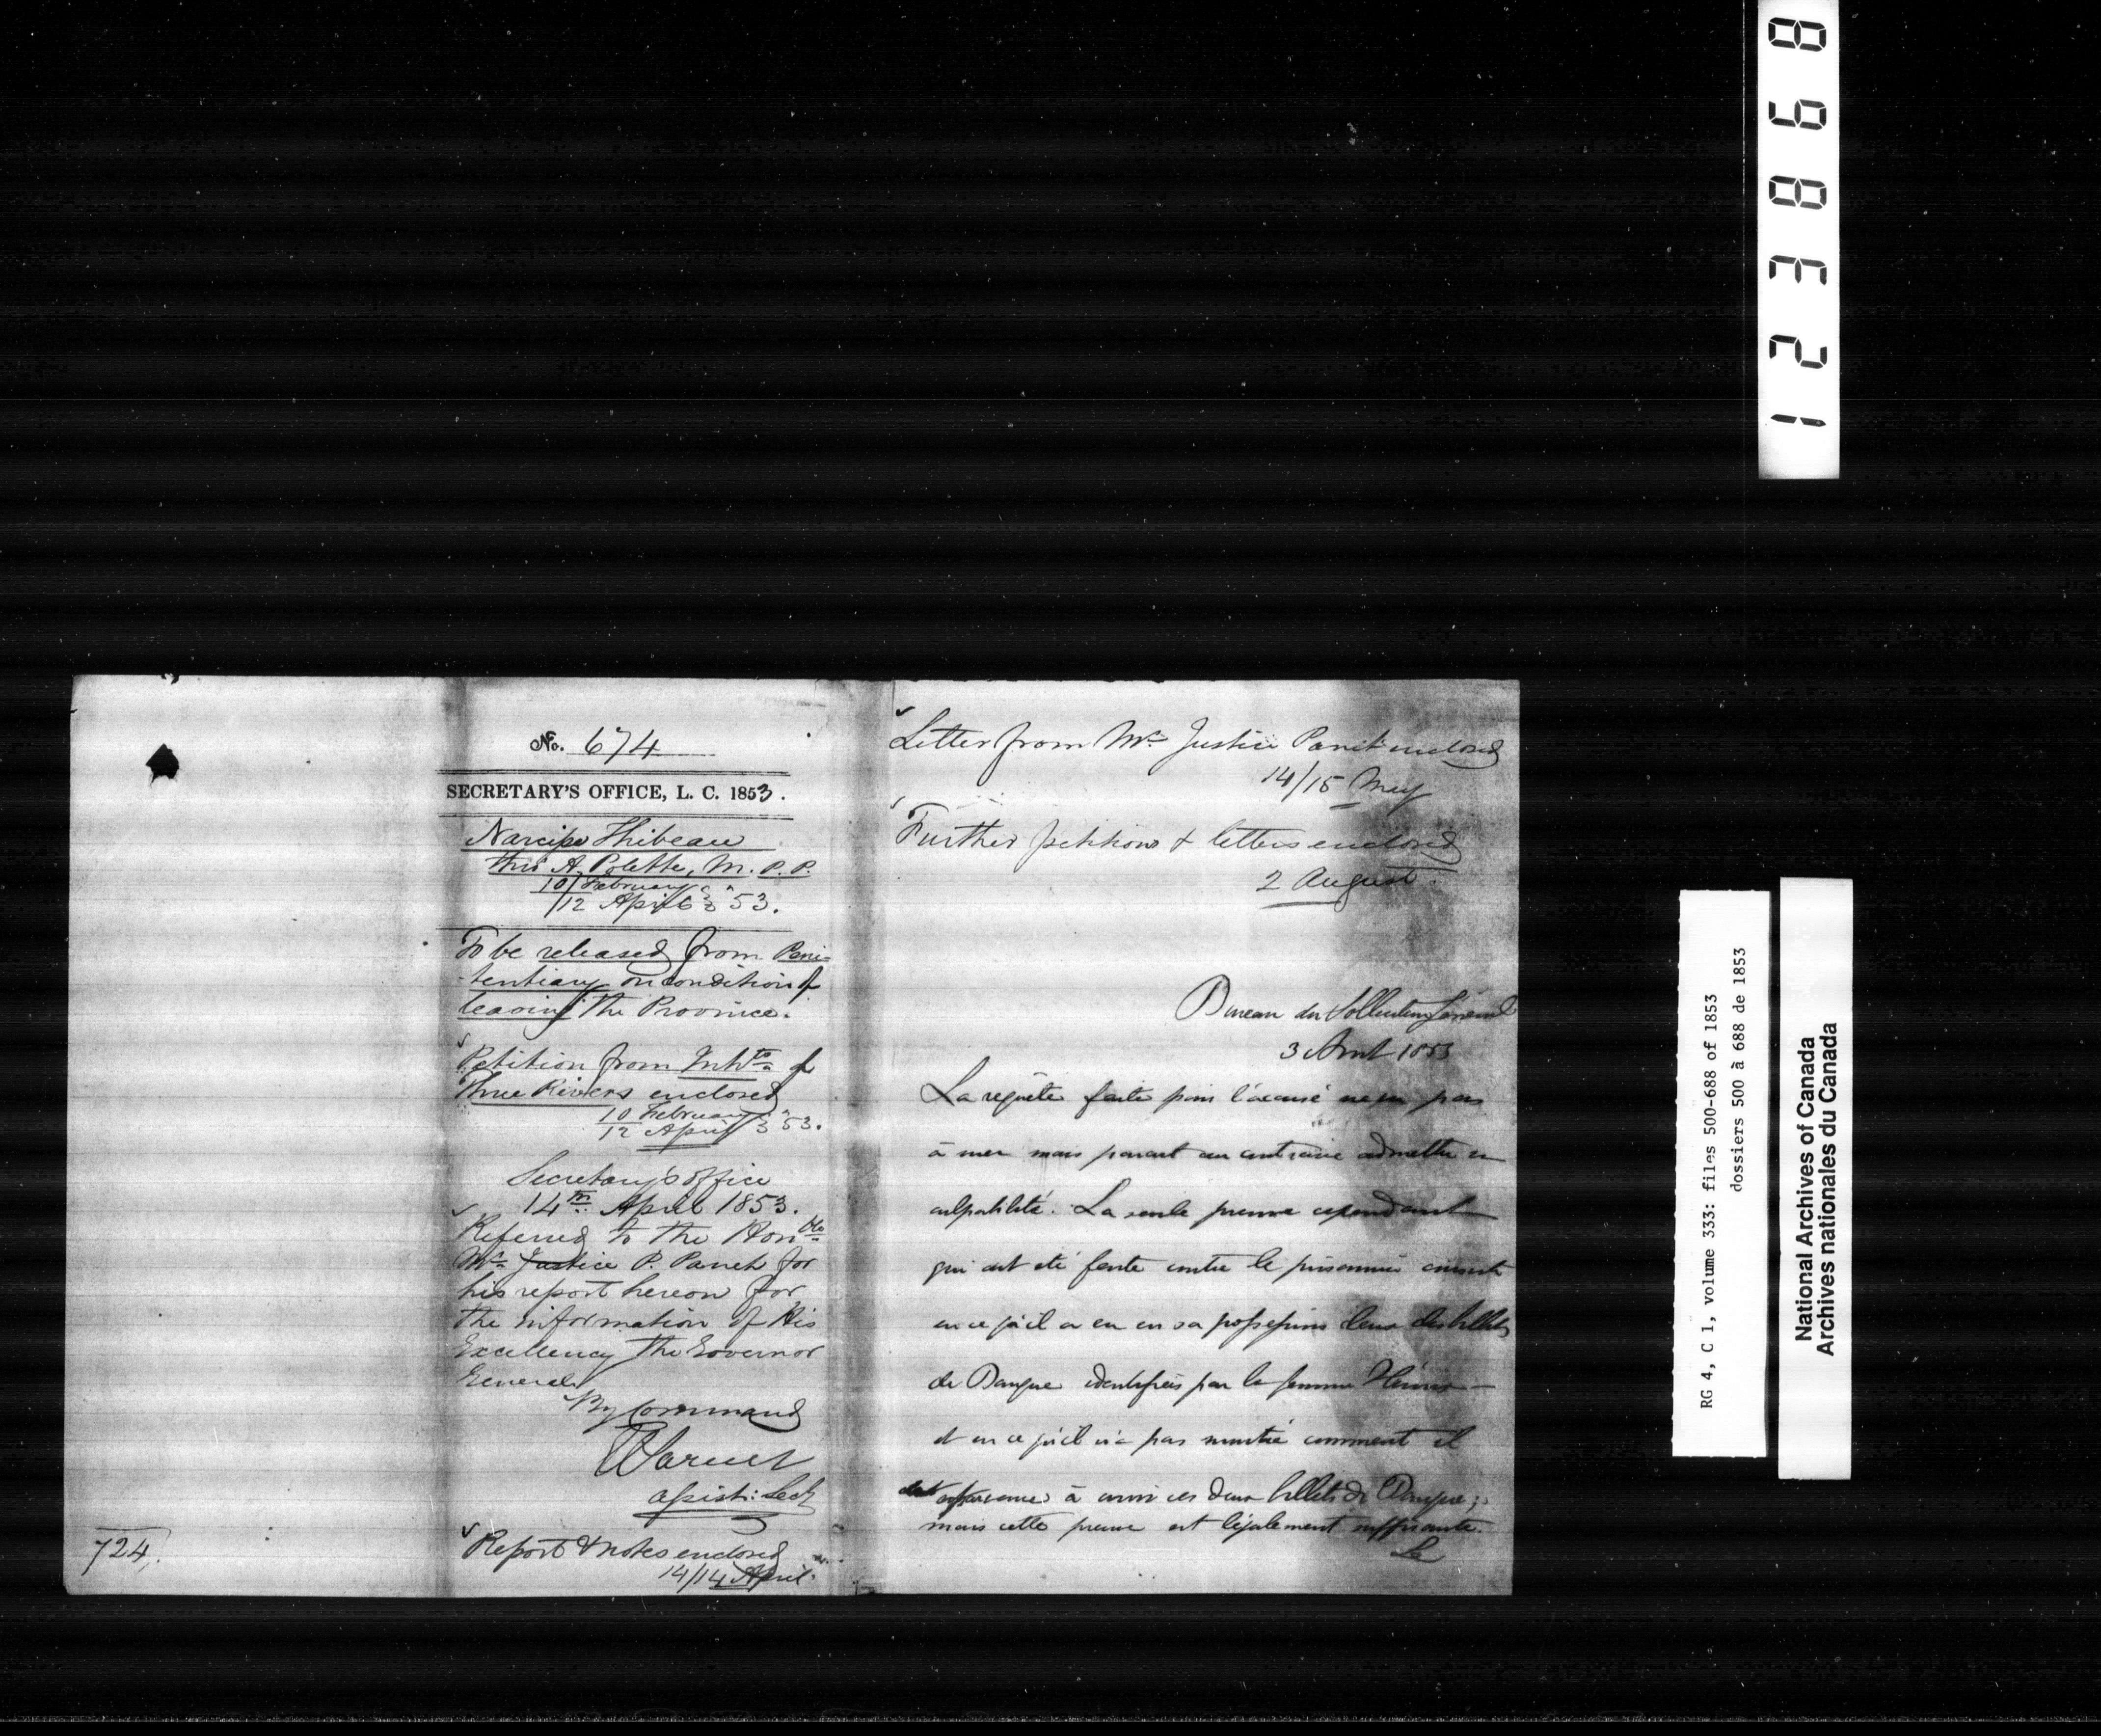 123868
No. 674
SECRETARY'S OFFICE, L. C. 1853.
Narcisse Thibeau
thro' A. Polette, M. P. P.
10/ February
/12 April 53.
To be released from Peni-
-tentiary on condition of
leaving the Province.
Petition from Inhts of
Three Rivers enclosed
10 February
12 April 53.
Secretary's office
14th April 1853.
Referred to the Honble
Mr. Justice P. Panet for
his report hereon for
the information of His
Excellency the Governor
General
By Command
assist: Secy
Report & notes enclosed
14/14 April
724
Letter from Mr. Justice Panet enclosed
14/15 May
Further petitions & letters enclosed
2 August
Bureau du Solliciteur Général
3 1853
La requête faite pour l'accusé pas
à nier mais parait au contraire admettre sa
culpabilité. La seule preuve cependant
qui ait été faite contre le prisonnier consiste
en ce qu'il a eu en sa possession deux des billets
de Banque identifiés par la femme
et en ce qu'il n'a pas montré comment il
à avoir ces deux billets de Banque;
mais cette preuve est légalement suffisante.
La
RG 4, C 1, volume 333: files 500-688 of 1853
dossiers 500 à 688 de 1853
National Archives of Canada
Archives nationales du Canada